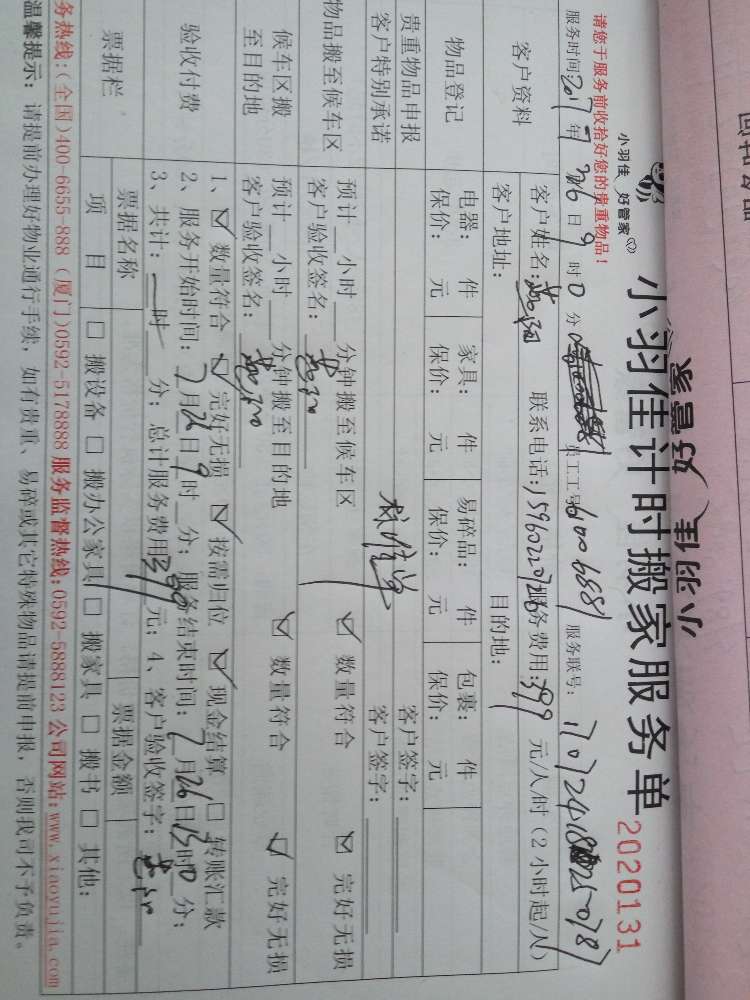 回执专品
小羽佳 好管家
小羽佳 好管家
小羽佳计时搬家服务单
2020131
请您于服务前收拾好您的贵重物品！
服务时间: 2017 年 7 26 日 9 时 0 分 员工工号 6100 6881 服务联号:
客户资料
客户姓名: 联系电话: 15960220726 服务费用: 399 元/人/时（2小时起/人）
客户地址: 目的地:
物品登记
电器: 件 家具: 件 易碎品: 件 包裹: 件
保价: 元 保价: 元 保价: 元 保价: 元
贵重物品申报 客户签字:
客户特别承诺 客户签字:
物品搬至候车区
预计 小时 分钟搬至候车区 ☑ 数量符合 ☑ 完好无损
客户验收签名:
候车区搬至目的地
预计 小时 分钟搬至目的地 ☑ 数量符合 ☑ 完好无损
客户验收签名:
验收付费
1、☑ 数量符合 ☑ 完好无损 ☑ 按需归位 ☑ 现金结算 □ 转账汇款
2、服务开始时间: 7 月 26 日 9 时 分; 服务结束时间: 7 月 26 日 15 时 0 分;
3、共计: 时 分; 总计服务费用 元; 4、客户验收签字:
票据栏
票据名称 票据金额
项 目 □ 搬设备 □ 搬办公家具 □ 搬家具 □ 搬书 □ 其他:
务热线:(全国)400-6655-888 (厦门)0592-5178888 服务监督热线:0592-5888123 公司网站:www.xiaoyujia.com
温馨提示: 请提前办理好物业通行手续，如有贵重、易碎或其它特殊物品请提前申报，否则我司不予负责。